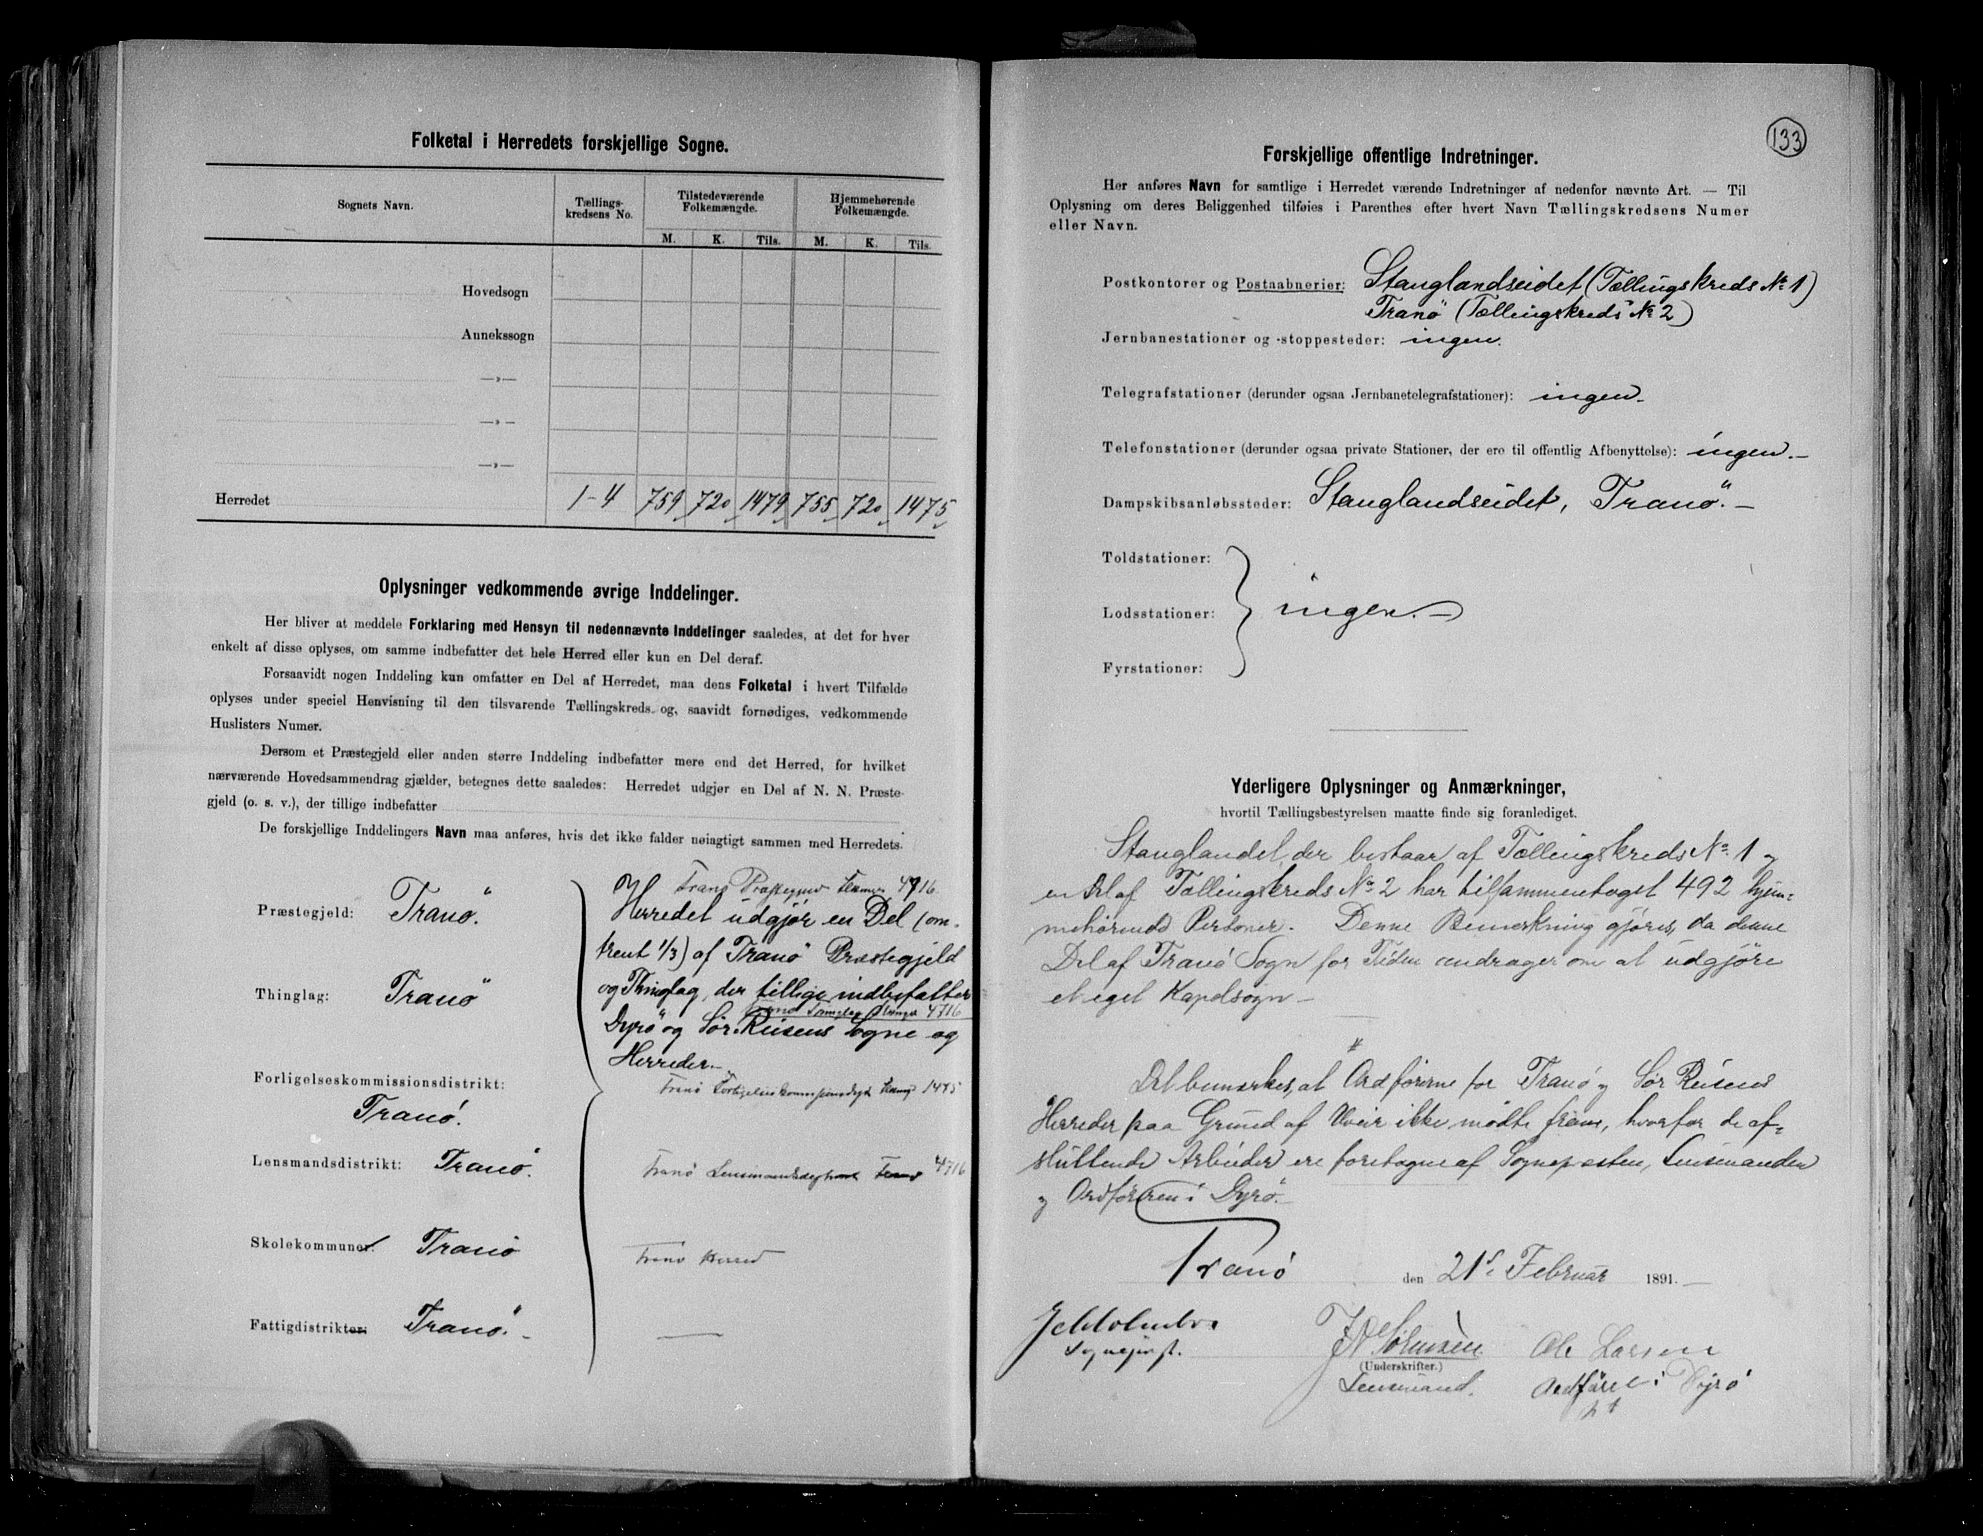 Folketal i Herredets forskjellige Sogne.
Sognets Navn.
Tællings-
kredsens No.
Tilstedeværende
Folkemængde.
Hjemmehørende
Folkemængde.
M. K. Tils. M. K. Tils.
Hovedsogn
Annekssogn
—»—
—»—
—»—
Herredet 1-4 759 720 1479 755 720 1475
Oplysninger vedkommende øvrige Inddelinger.
Her bliver at meddele Forklaring med Hensyn til nedennævnte Inddelinger saaledes, at det for hver
enkelt af disse oplyses, om samme indbefatter det hele Herred eller kun en Del deraf.
Forsaavidt nogen Inddeling kun omfatter en Del af Herredet, maa dens Folketal i hvert Tilfælde
oplyses under speciel Henvisning til den tilsvarende Tællingskreds og, saavidt fornødiges, vedkommende
Huslisters Numer.
Dersom et Præstegjeld eller anden større Inddeling indbefatter mere end det Herred, for hvilket
nærværende Hovedsammendrag gjælder, betegnes dette saaledes: Herredet udgjør en Del af N. N. Præste-
gjeld (o. s. v.), der tillige indbefatter
De forskjellige Inddelingers Navn maa anføres, hvis det ikke falder nøiagtigt sammen med Herredets.
Tranø 4716
Præstegjeld: Tranö.
Herredet udgjør en Del (om-
trent 1/3) af Tranö Præstegjeld
Thinglag: Tranö
og Thinglag, der tillige indbefatter
4716
Dyrö og Sör Reisens Sogne og
Herreder.
Forligelseskommissionsdistrikt:
Tranö.
Tranø 1475
Lensmandsdistrikt: Tranö.
Tranø 4716
Skolekommuner: Tranö
Tranø Herred
Fattigdistrikter: Tranö.
133
Forskjellige offentlige Indretninger.
Her anføres Navn for samtlige i Herredet værende Indretninger af nedenfor nævnte Art. — Til
Oplysning om deres Beliggenhed tilføies i Parenthes efter hvert Navn Tællingskredsens Numer
eller Navn.
Postkontorer og Postaabnerier: Stanglandseidet (Tællingskreds № 1)
Tranö (Tællingskreds № 2)
Jernbanestationer og -stoppesteder: ingen.
Telegrafstationer (derunder ogsaa Jernbanetelegrafstationer): ingen.
Telefonstationer (derunder ogsaa private Stationer, der ere til offentlig Afbenyttelse): ingen.
Dampskibsanløbssteder: Stanglandseidet, Tranö.
Toldstationer:
Lodsstationer: ingen.
Fyrstationer:
Yderligere Oplysninger og Anmærkninger,
hvortil Tællingsbestyrelsen maatte finde sig foranlediget.
Stanglandet, der bestaar af Tællingskreds № 1 og
en Del af Tællingskreds № 2 har tilsammentaget 492 hjem-
mehørende Personer. Denne Bemerkning gjøres, da denne
Del af Tranö Sogn for Tiden andrager om at udgjöre
et eget Kapelsogn
Det bemerkes, at Ordførerne for Tranö og Sör Reisens
Herreder paa Grund af Uveir ikke mødte frem, hvorfor de af-
sluttende Arbeider ere foretagne af Sognepresten, Lensmanden
og Ordføreren i Dyrö.
Tranö den 21de Februar 1891.
Sognepr.
Sörensen
(Underskrifter.)
Lensmand.
Ole Larsen
Ordfører i Dyrö